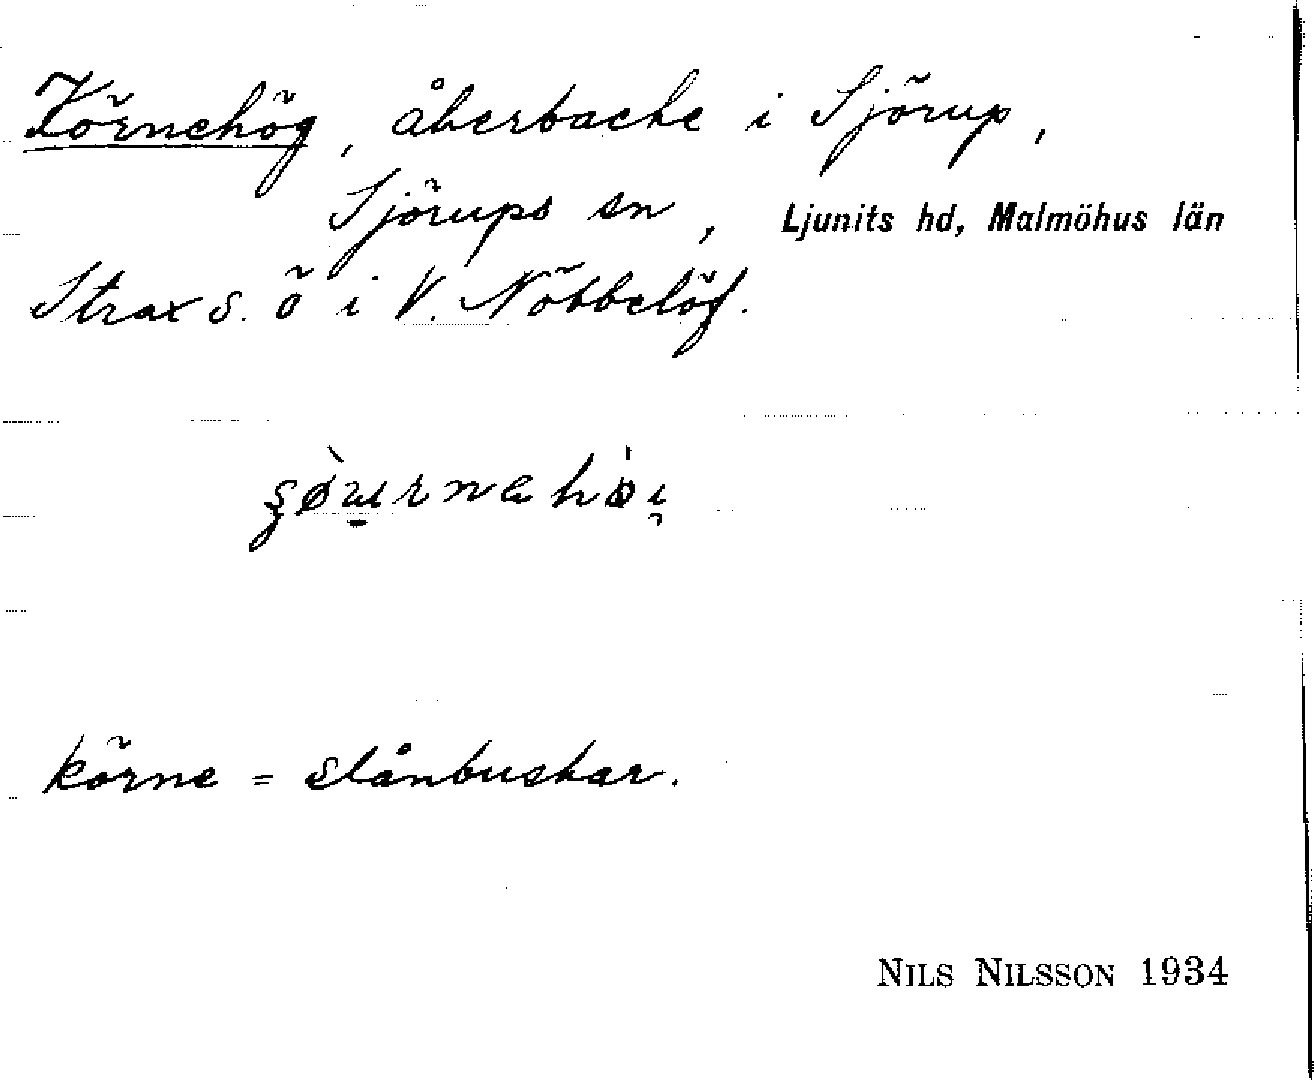 Körnehög, åkerbacke i Sjörup,
Sjörups sn, Ljunits hd, Malmöhus län
Strax S. ö i V. Nöbbelöf.
körne = slånbuskar.
NILS NILSSON 1934